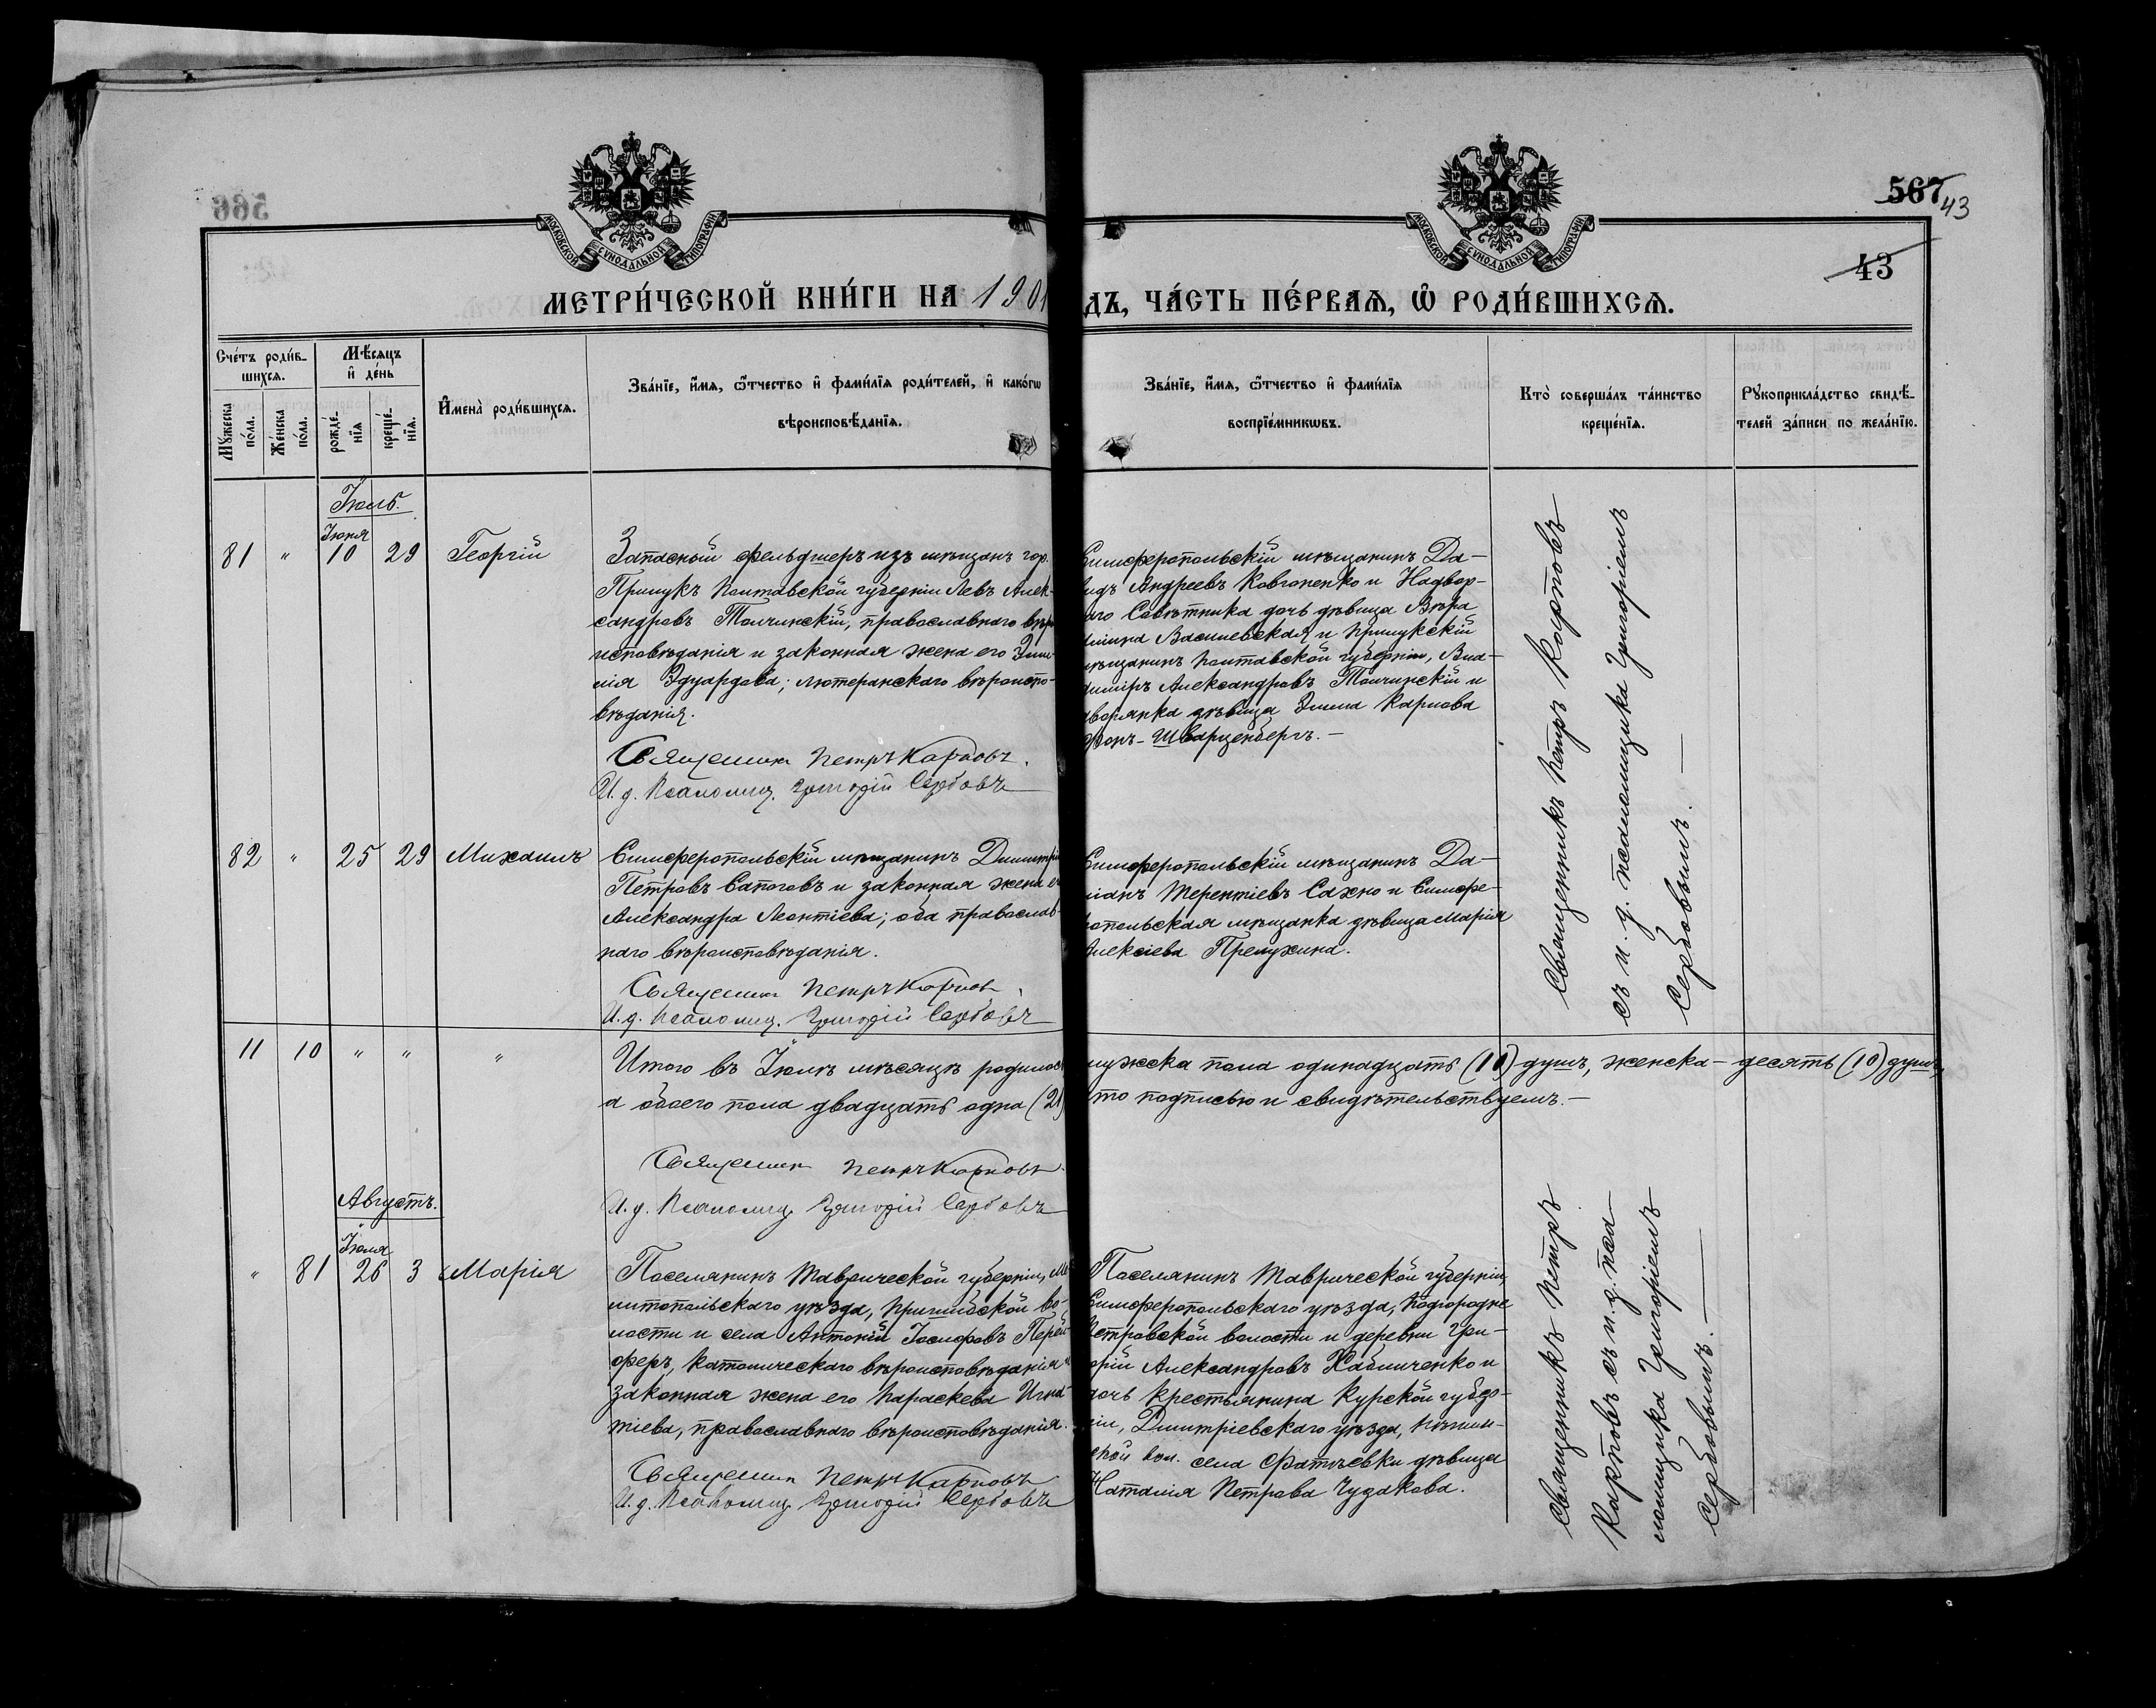 566
567
43
43
МОСКОВСКОЙ СѴНОДАЛЬНОЙ ТИПОГРАФІИ
МОСКОВСКОЙ СѴНОДАЛЬНОЙ ТИПОГРАФІИ
МЕТРИ́ЧЕСКОЙ КНИ́ГИ НА 1901
ДЪ, ЧА́СТЬ ПЕ́РВАѦ, Ѽ РОДИ́ВШИХСѦ.
Сче́тъ роди́в-
шихся.
Мѣ́сяцъ
и҆ де́нь
Мꙋ́жеска
по́ла.
Же́нска
по́ла.
рожде́-
нїя
креще́-
нїя.
И҆мена̀ роди́вшихся.
Зва́нїе, и҆́мя, ѻ҆́тчество и҆ фами́лїя роди́телей, и҆ како́гѡ
вѣроисповѣ́данїя.
Зва́нїе, и҆́мя, ѻ҆́тчество и҆ фами́лїя
воспрїе́мникѡвъ.
Кто̀ соверша́лъ та́инство
креще́нїя.
Рꙋкоприкла́дство свидѣ́-
телей за́писи по жела́нїю.
Іюль.
Іюня
81 " 10 29 Георгій
Запасный фельдшеръ изъ мѣщанъ гор.
Прилукъ Полтавской губерніи Левъ Алек-
сандровъ Толчинскій, православнаго вѣро
исповѣданія и законная жена его Эми-
лія Эдуардова; лютеранскаго вѣроиспо-
вѣданія.
Священникъ Петръ Карповъ.
И. д. Псаломщ. Григорій Сербовъ
Симферопольскій мѣщанинъ Да-
видъ Андреевъ Ковганенко и Надвор-
наго Совѣтника дочь дѣвица Вѣра
Василевская и Прилукскій
мѣщанинъ Полтавской губерніи, Вла-
димиръ Александровъ Толчинскій и
дворянка дѣвица Эмма Карлова
Фонъ-Шварценбергъ.-
Священникъ Петръ Карповъ
съ и. д. псаломщика Григоріемъ
Сербовымъ.
82 " 25 29 Михаилъ
Симферопольскій мѣщанинъ Димитрій
Петровъ Сапоговъ и законная жена е
Александра Леонтіева; оба православ-
наго вѣроисповѣданія.
Священникъ Петръ Карповъ
И. д. Псаломщ. Григорій Сербовъ
Симферопольскій мѣщанинъ Да-
міанъ Терентіевъ Сахно и Симфе-
ропольская мѣщанка дѣвица Марія
Алексіева Премухина.
11 10 " " "
Итого въ Іюлѣ мѣсяцѣ родилось мужеска пола одинадцать (11) душъ, женска - десять (10) душъ,
а обоего пола двадцать одна (21) что подписью и свидѣтельствуемъ.-
Священникъ Петръ Карповъ.
И. д. Псаломщ. Григорій Сербовъ
Августъ.
Іюля
" 81 26 3 Марія
Поселянинъ Таврической губерніи, Ме
литопольскаго уѣзда, Пришибской во-
лости и села Антоній Іосифовъ Перей-
феръ, католическаго вѣроисповѣданія и
законная жена его Параскева Игна-
тіева, православнаго вѣроисповѣданія.
Священникъ Петръ Карповъ
И. д. Псаломщ. Григорій Сербовъ
Поселянинъ Таврической губерніи,
Симферопольскаго уѣзда, Подгородне
Петровской волости и деревни Гри-
горій Александровъ Хабличенко и
дочь крестьянина Курской губер-
ніи, Димитріевскаго уѣзда,
ской вол. села Фатѣевки дѣвица
Наталія Петрова Чудакова.
Священникъ Петръ
Карповъ съ и. д. пса-
ломщика Григоріемъ
Сербовымъ.